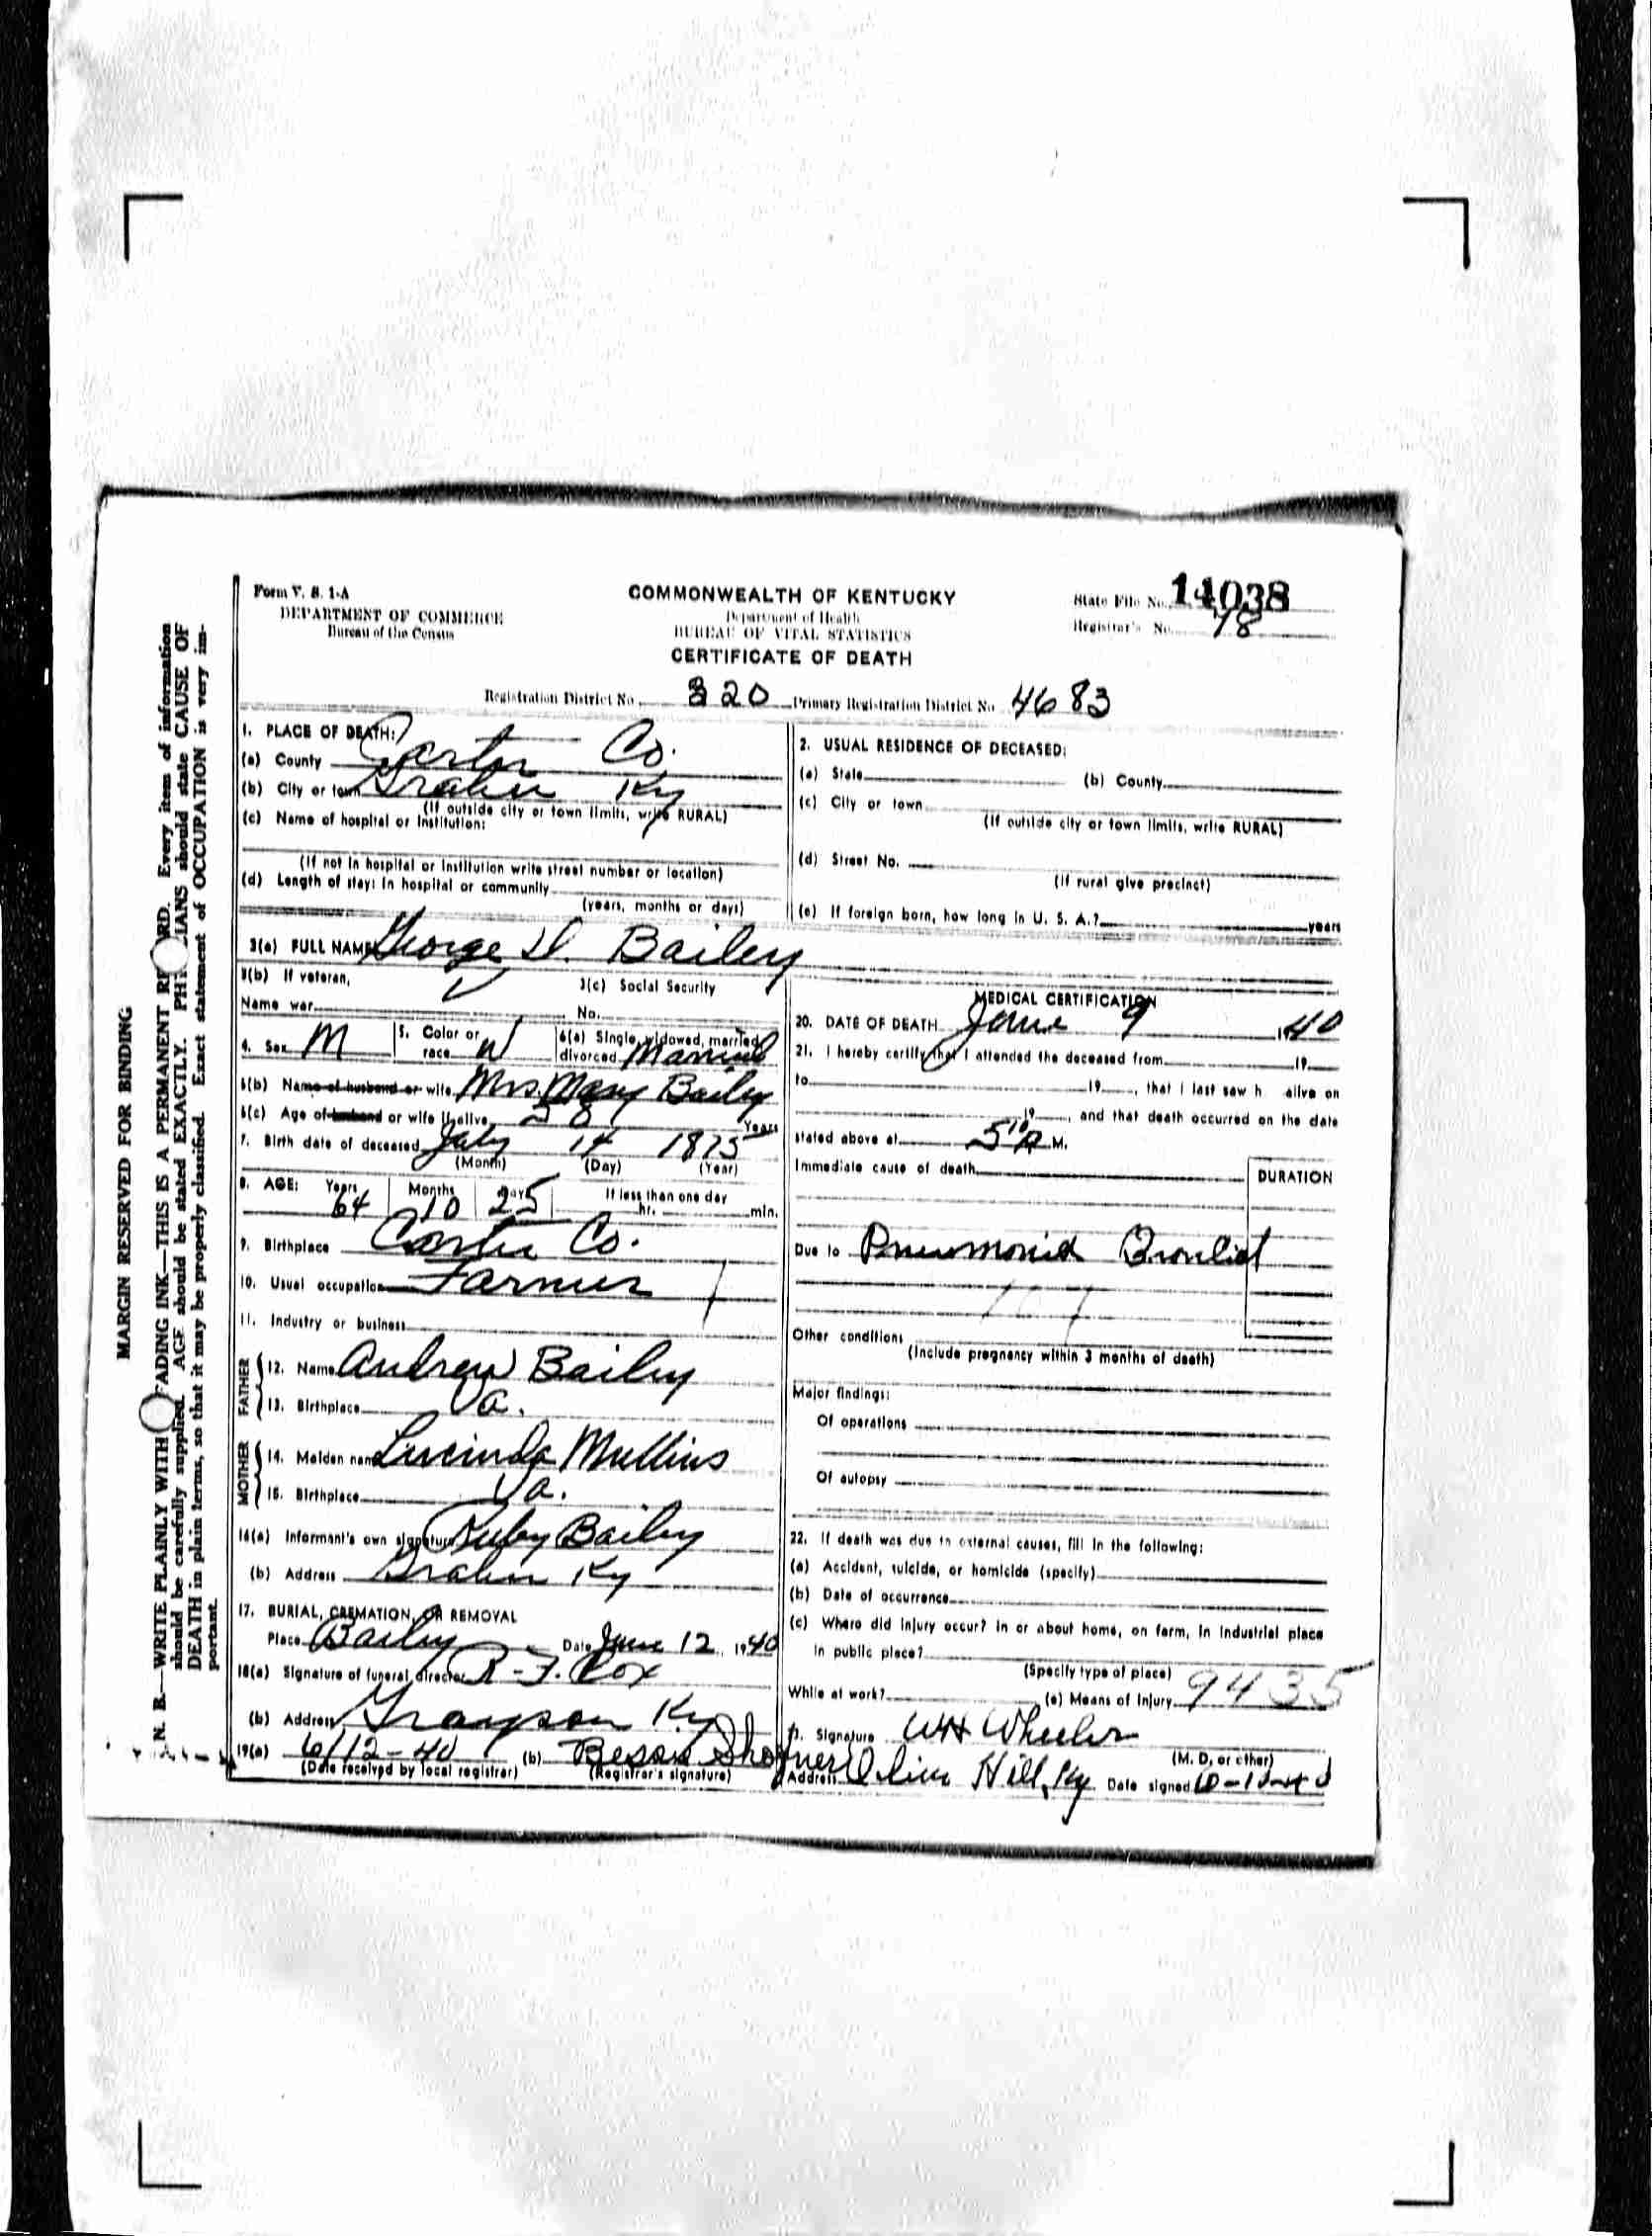 MARGIN RESERVED FOR BINDING
N. B.—WRITE PLAINLY WITH FADING INK—THIS IS A PERMANENT RE RD. Every item of information
should be carefully supplied. AGE should be stated EXACTLY. PHY IANS should state CAUSE OF
DEATH in plain terms, so that it may be properly classified. Exact statement of OCCUPATION is very im-
portant.
Form V. S. 1-A
DEPARTMENT OF COMMERCE
Bureau of the Census
COMMONWEALTH OF KENTUCKY
Department of Health
BUREAU OF VITAL STATISTICS
CERTIFICATE OF DEATH
State File No. 14038
Registrar's No. 78
Registration District No. 320 Primary Registration District No. 4683
1. PLACE OF DEATH:
(a) County Carter Co.
(b) City or town Grahn Ky
(If outside city or town limits, write RURAL)
(c) Name of hospital or Institution:
(If not in hospital or institution write street number or location)
(d) Length of stay: In hospital or community
(years, months or days)
2. USUAL RESIDENCE OF DECEASED:
(a) State (b) County
(c) City or town
(If outside city or town limits, write RURAL)
(d) Street No.
(If rural give precinct)
(e) If foreign born, how long in U. S. A.? years
3(a) FULL NAME George D. Bailey
3(b) If veteran,
Name war
3(c) Social Security
No.
4. Sex M 5. Color or race W 6(a) Single, widowed, married, divorced Married
6(b) Name of husband or wife Mrs. Mary Bailey
6(c) Age of husband or wife if alive 58 Years
7. Birth date of deceased July 14 1875
(Month) (Day) (Year)
8. AGE: Years 64 Months 10 Days 25 If less than one day
hr. min.
9. Birthplace Carter Co.
10. Usual occupation Farmer
11. Industry or business
FATHER
12. Name Andrew Bailey
13. Birthplace Va.
MOTHER
14. Maiden name Lucinda Mullins
15. Birthplace Va.
16(a) Informant's own signature Ruby Bailey
(b) Address Grahn Ky
17. BURIAL, CREMATION, OR REMOVAL
Place Bailey Date June 12, 1940
18(a) Signature of funeral director R. F. Cox
(b) Address Grayson Ky
19(a) 6/12-40 (b)
(Date received by local registrar) (Registrar's signature)
MEDICAL CERTIFICATION
20. DATE OF DEATH June 9 1940
21. I hereby certify that I attended the deceased from 19
to 19 , that I last saw h alive on
19 , and that death occurred on the date
stated above at 5 10 A M.
Immediate cause of death
DURATION
Due to Pneumonia
107
Other conditions
(Include pregnancy within 3 months of death)
Major findings:
Of operations
Of autopsy
22. If death was due to external causes, fill in the following:
(a) Accident, suicide, or homicide (specify)
(b) Date of occurrence
(c) Where did injury occur? In or about home, on farm, in industrial place
in public place?
(Specify type of place)
While at work? (e) Means of Injury 9435
Signature WH Wheeler
(M. D. or other)
Address Olive Hill, Ky Date signed